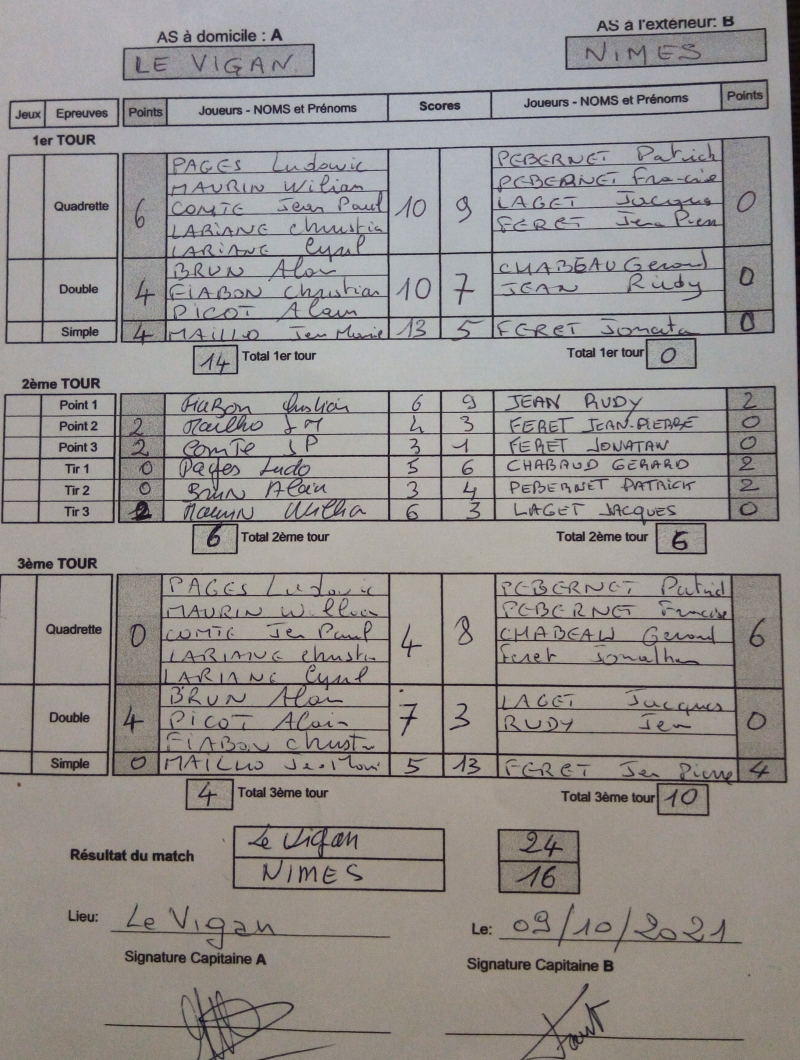 AS à domicile : A AS à l'extérieur: B
LE VIGAN NIMES
Jeux Epreuves Points Joueurs - NOMS et Prénoms Scores Joueurs - NOMS et Prénoms Points
1er TOUR
PAGES Ludovic PEBERNET Patrick
MAURIN Wilian PEBERNET
Quadrette 6 COMTE Jean Paul 10 9 LAGET Jacques 0
LARIANE Christia FERET
LARIANE Cyril
BRUN Alain CHABEAU Gerard
Double 4 FIABON Christian 10 7 JEAN Rudy 0
PICOT Alain
Simple 4 MAILLO Jean Marie 13 5 FERET Jonata 0
14 Total 1er tour Total 1er tour 0
2ème TOUR
Point 1 FIABON 6 9 JEAN RUDY 2
Point 2 2 Mailho JM 4 3 FERET JEAN-PIERRE 0
Point 3 2 COMTE JP 3 1 FERET JONATAN 0
Tir 1 0 Pages Ludo 5 6 CHABAUD GERARD 2
Tir 2 0 Brun Alain 3 4 PEBERNET PATRICK 2
Tir 3 2 6 3 LAGET JACQUES 0
6 Total 2ème tour Total 2ème tour 6
3ème TOUR
PAGES Ludovic PEBERNET Patrick
MAURIN PEBERNET
Quadrette 0 COMTE Jen Paul 4 8 CHABEAU Gerard 6
LARIANE Feret Jonathan
LARIANE Cyril
BRUN Alain LAGET Jacques
Double 4 PICOT Alain 7 3 RUDY Jen 0
FIABON
Simple 0 MAILHO 5 13 FERET Jen Pierre 4
4 Total 3ème tour Total 3ème tour 10
Résultat du match Le Vigan 24
NIMES 16
Lieu: Le Vigan Le: 09/10/2021
Signature Capitaine A Signature Capitaine B